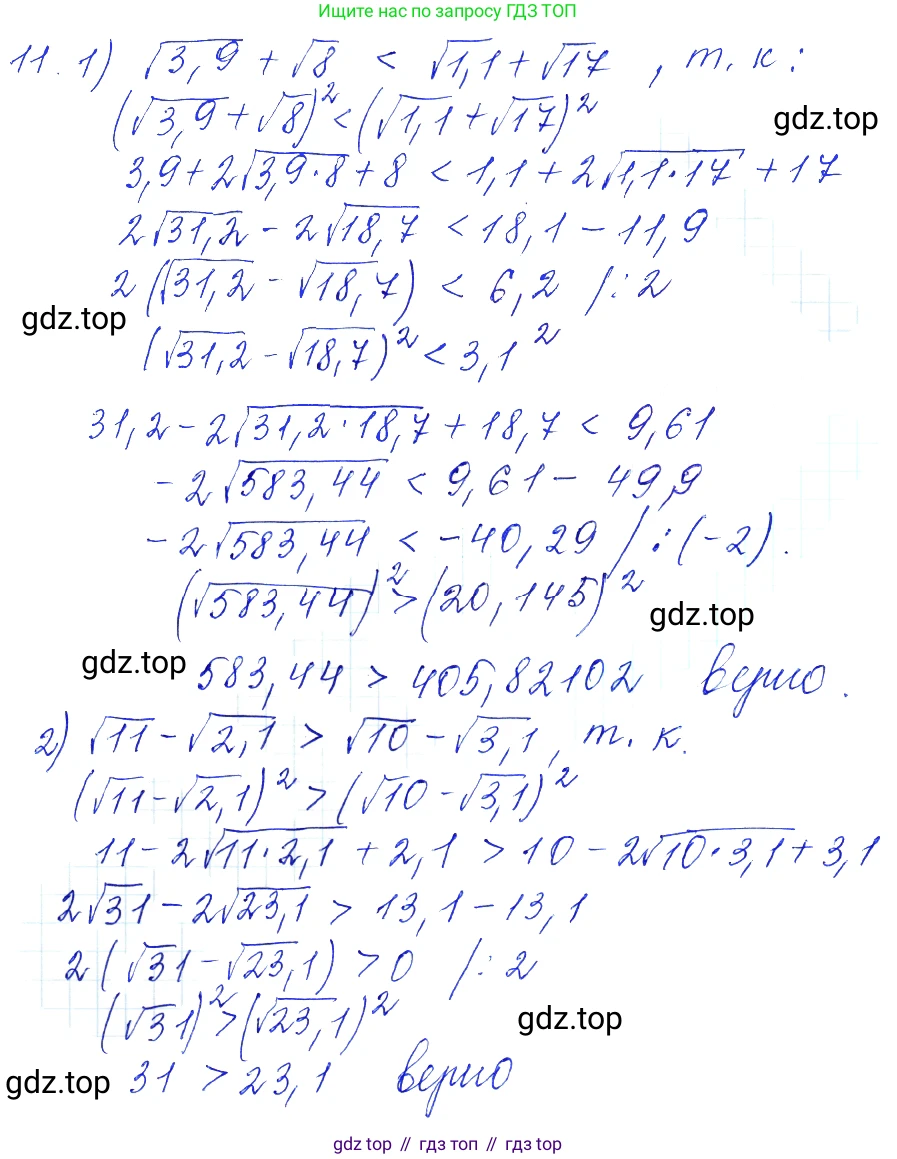 Ищите нас по запросу ГДЗ ТОП
11. 1) √3,9 + √8 < √1,1 + √17, т.к:
(√3,9 + √8)² < (√1,1 + √17)²
gdz.top
3,9 + 2√3,9·8 + 8 < 1,1 + 2√1,1·17 + 17
2√31,2 - 2√18,7 < 18,1 - 11,9
2 (√31,2 - √18,7) < 6,2 /:2
gdz.top
(√31,2 - √18,7)² < 3,1²
31,2 - 2√31,2·18,7 + 18,7 < 9,61
-2√583,44 < 9,61 - 49,9
-2√583,44 < -40,29 /:(-2).
(√583,44)² > (20,145)²
gdz.top
gdz.top
583,44 > 405,82102 верно.
2) √11 - √2,1 > √10 - √3,1, т.к.
(√11 - √2,1)² > (√10 - √3,1)²
11 - 2√11·2,1 + 2,1 > 10 - 2√10·3,1 + 3,1
2√31 - 2√23,1 > 13,1 - 13,1
2 (√31 - √23,1) > 0 /:2
(√31)² > (√23,1)²
gdz.top
gdz.top
31 > 23,1 верно
gdz top // гдз топ // гдз top